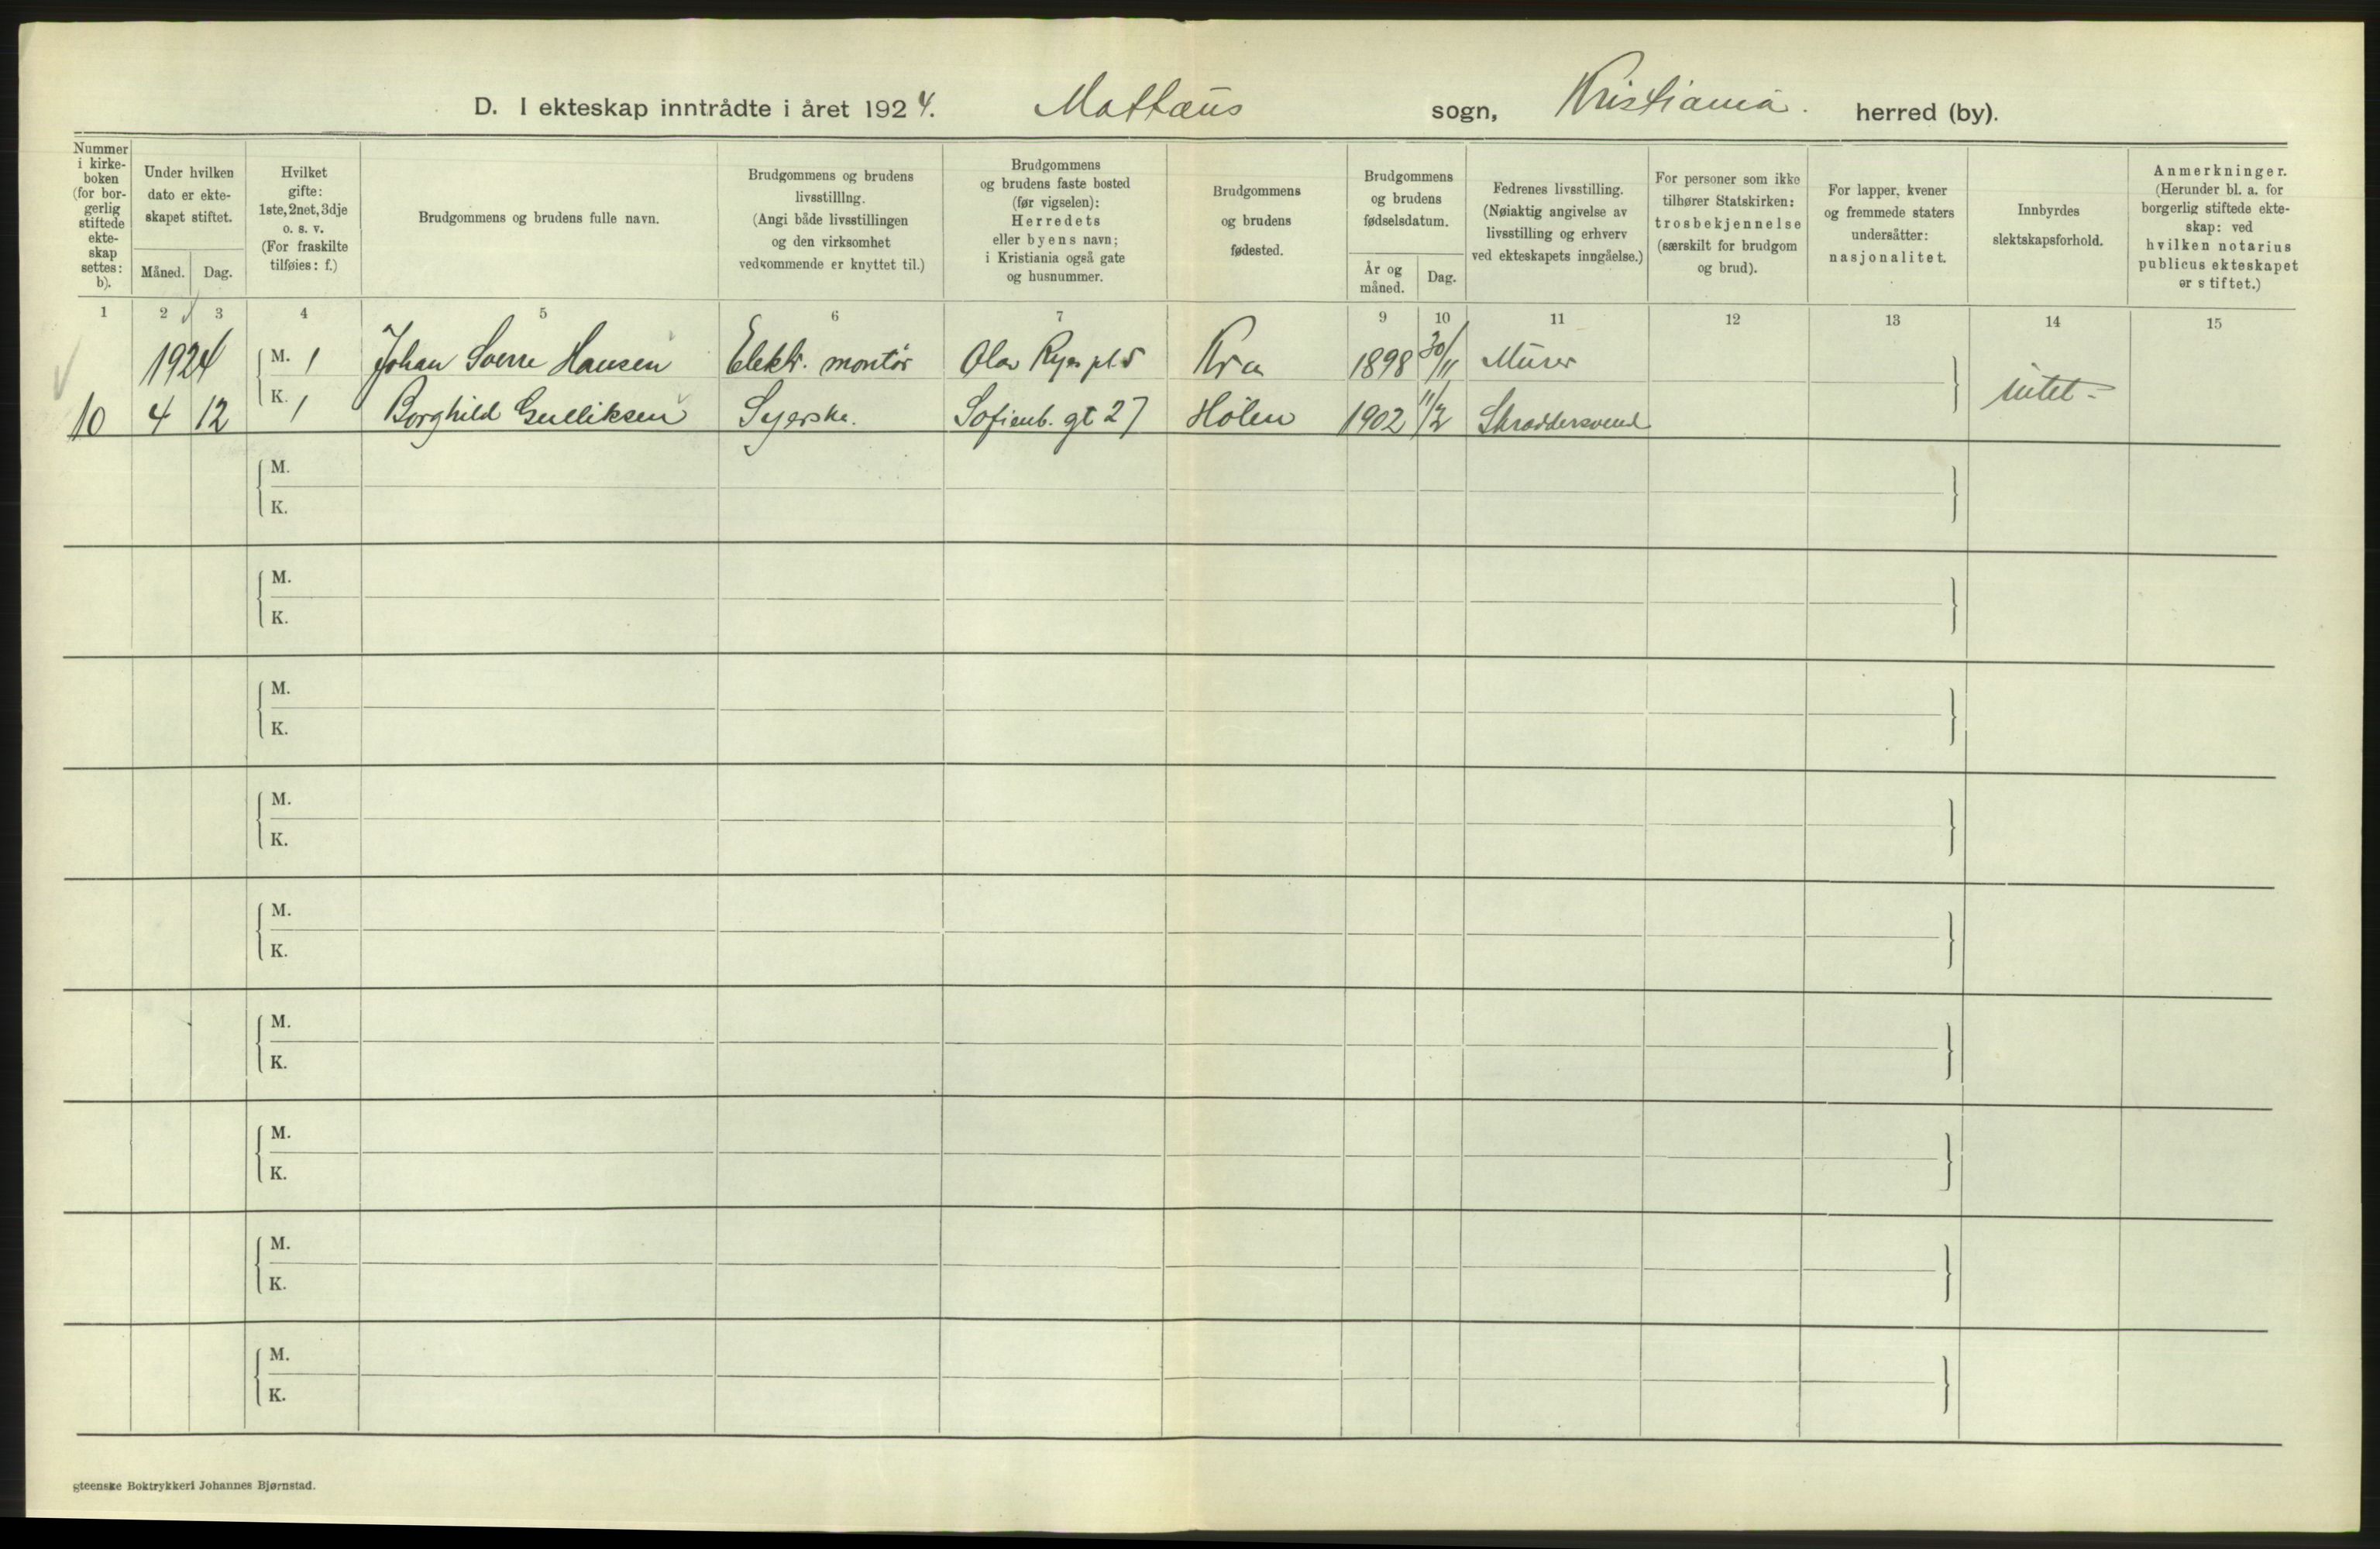 D. I ekteskap inntrådte i året 1924. Mattæus sogn, Kristiania. herred (by).
Nummer
i kirke-
boken
(for bor-
gerlig
stiftede
ekte-
skap
settes:
b).
Under hvilken
dato er ekte-
skapet stiftet.
Måned. Dag.
Hvilket
gifte:
1ste, 2net, 3dje
o. s. v.
(For fraskilte
tilføies: f.)
Brudgommens og brudens fulle navn.
Brudgommens og brudens
livsstilling.
(Angi både livsstillingen
og den virksomhet
vedkommende er knyttet til.)
Brudgommens
og brudens faste bosted
(før vigselen):
Herredets
eller byens navn;
i Kristiania også gate
og husnummer.
Brudgommens
og brudens
fødested.
Brudgommens
og brudens
fødselsdatum.
År og
måned.
Dag.
Fedrenes livsstilling.
(Nøiaktig angivelse av
livsstilling og erhverv
ved ekteskapets inngåelse.)
For personer som ikke
tilhører Statskirken:
trosbekjennelse
(særskilt for brudgom
og brud).
For lapper, kvener
og fremmede staters
undersåtter:
nasjonalitet.
Innbyrdes
slektskapsforhold.
Anmerkninger.
(Herunder bl. a. for
borgerlig stiftede ekte-
skap: ved
hvilken notarius
publicus ekteskapet
er stiftet.)
1 2 3 4 5 6 7 8 9 10 11 12 13 14 15
1924 M. 1 Johan Sverre Hansen Elektr. montør Olav Ryes pl. 5 Kra 1898 30/11 Murer
intet -
10 4 12 K. 1 Borghild Gulliksen Syerske. Sofienb. gt 27 Hølen 1902 11/2 Skræddersvend
M.
K.
M.
K.
M.
K.
M.
K.
M.
K.
M.
K.
M.
K.
M.
K.
M.
K.
gteenske Boktrykkeri Johannes Bjørnstad.